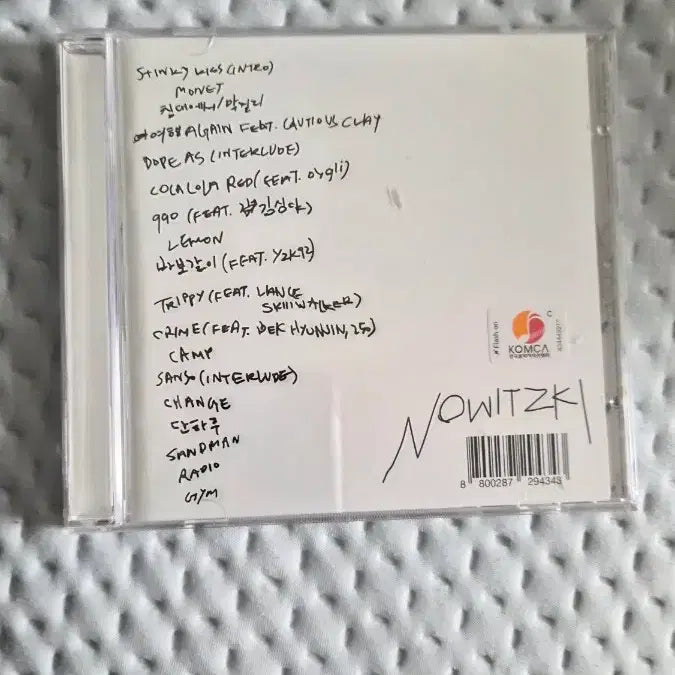 STINKY KISS (INTRO)
MONET
침대에서/막걸리
여행 AGAIN FEAT. CAUTIOUS CLAY
DOPE AS (INTERLUDE)
COCA COLA RED (FEAT. oygli)
990 (FEAT. 김심야)
LEMON
바보같이 (FEAT. Y2K92)
TRIPPY (FEAT. LANCE
SKIIIWALKER)
CRIME (FEAT. BEK HYUNJIN, 250)
CAMP
SANSO (INTERLUDE)
CHANGE
단하루
SANDMAN
RADIO
GYM
Flash on
KOMCA
한국음악저작권협회
C
NOWITZKI
8 800287 294343